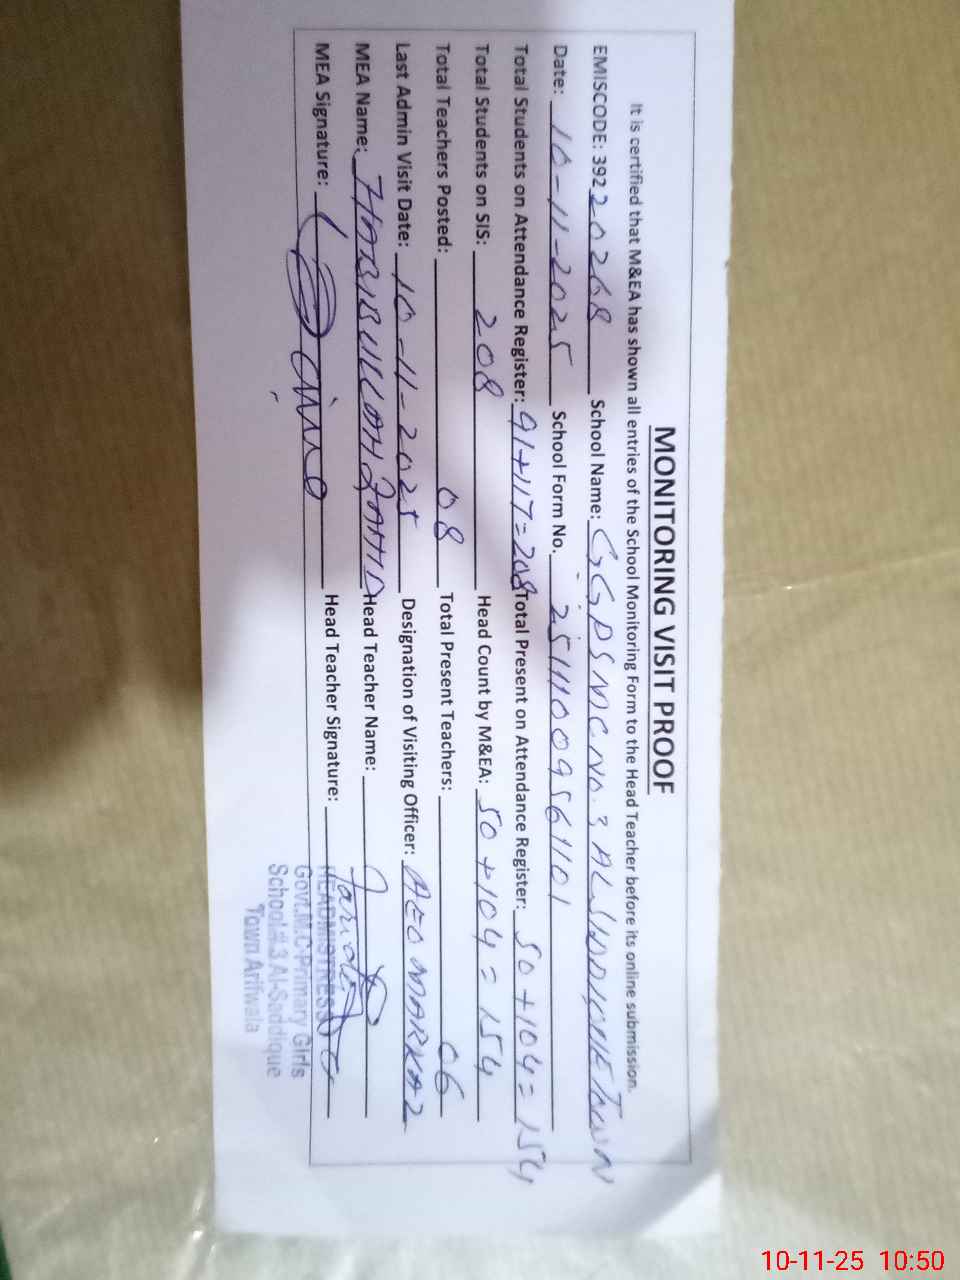 MONITORING VISIT PROOF
It is certified that M&EA has shown all entries of the School Monitoring Form to the Head Teacher before its online submission.
EMISCODE: 39220268 School Name: GGPS MC NO. 3 ALSIDDIQUE TOWN
Date: 10-11-2025 School Form No. 25111009561101
Total Students on Attendance Register: 91+117=208 Total Present on Attendance Register: 50+104=154
Total Students on SIS: 208 Head Count by M&EA: 50+104=154
Total Teachers Posted: 08 Total Present Teachers: 06
Last Admin Visit Date: 10-11-2025 Designation of Visiting Officer: AEO MARKAZ
MEA Name: HABIBULLAH ZAHID Head Teacher Name:
MEA Signature: Head Teacher Signature:
HEADMISTRESS
Govt.M.C Primary Girls
School# 3 Al-Saddique
Town Arifwala
10-11-25 10:50